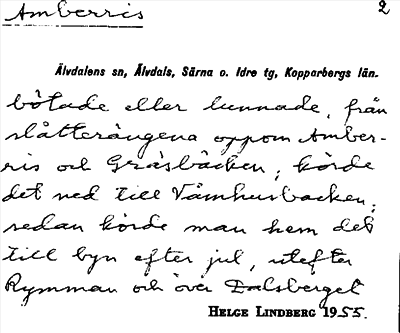 Amberris
2
Älvdalens sn, Älvdals, Särna o. Idre tg, Kopparbergs län.
bötade eller lunnade, från
slåtterängena oppom Amber-
ris och Gräsbäcken; körde
det ned till Våmhusbacken;
sedan körde man hem det
till byn efter jul, utefter
Rymman och över Dalsberget
HELGE LINDBERG 1955.